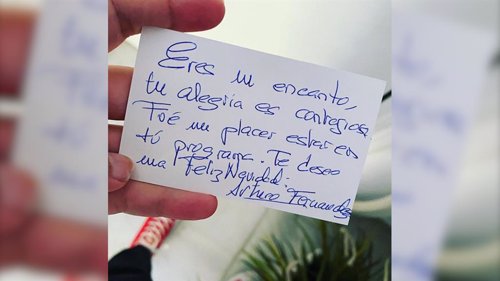 Eres un encanto,
tu alegría es contagiosa.
Fué un placer estar en
tú programa. Te deseo
una Feliz Navidad.
Arturo Fernandez